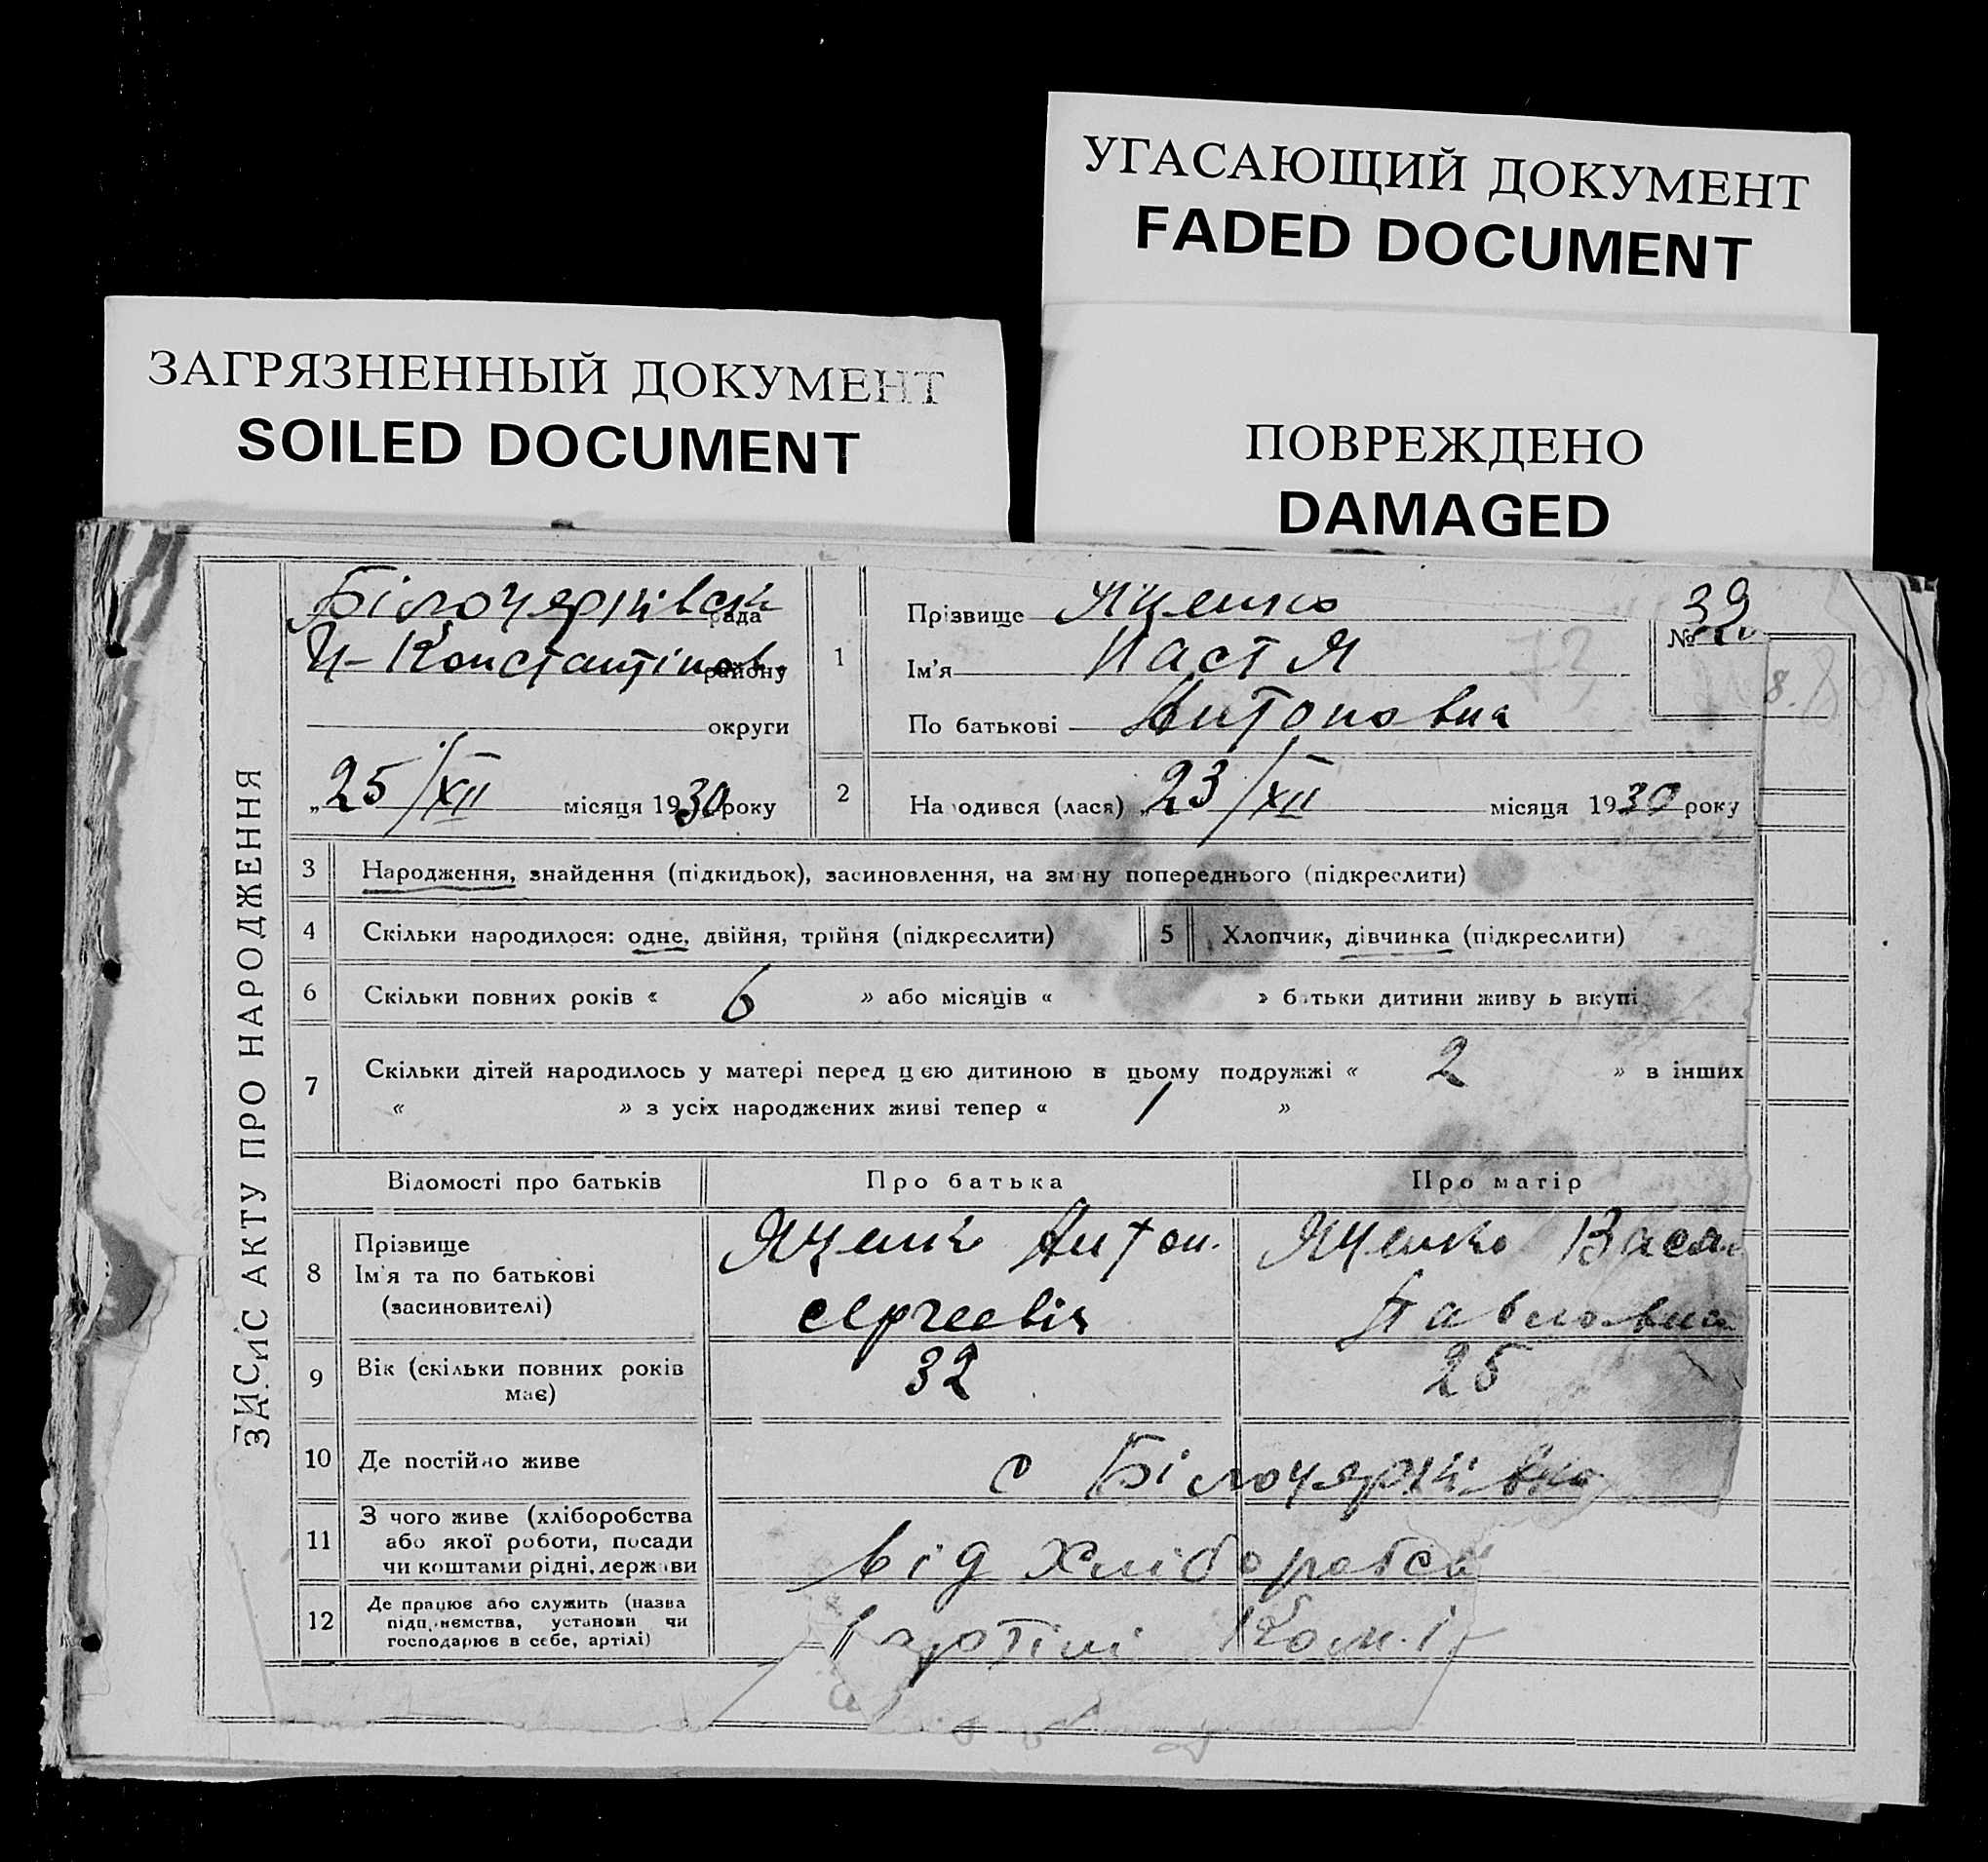 УГАСАЮЩИЙ ДОКУМЕНТ
FADED DOCUMENT
ЗАГРЯЗНЕННЫЙ ДОКУМЕНТ
SOILED DOCUMENT
ПОВРЕЖДЕНО
DAMAGED
ЗАПИС АКТУ ПРО НАРОДЖЕННЯ
Білоцярківськ рада
Н-Константінов району
округи
„25/XII місяця 1930 року
1
Прізвище Яценко
Ім'я Настя
По батькові Антоновна
№ 39
73
8. 80
2 На одився (лася) „23/XII місяця 1930 року
3 Народження, знайдення (підкидьок), засиновлення, на зміну попереднього (підкреслити)
4 Скільки народилося: одне, двійня, трійня (підкреслити) 5 Хлопчик, дівчинка (підкреслити)
6 Скільки повних років « 6 » або місяців « » батьки дитини живу ь вкупі
7 Скільки дітей народилось у матері перед цією дитиною в цьому подружжі « 2 » в інших
« » з усіх народжених живі тепер « 1 »
Відомості про батьків Про батька Про матір
8 Прізвище
Ім'я та по батькові
(засиновителі)
Яценко Антон.
Сергеевіч
Яценко Васи
Павловна
9 Вік (скільки повних років
має)
32 25
10 Де постійно живе с Білоцярківка
11 З чого живе (хліборобства
або якої роботи, посади
чи коштами рідні, держави
від хліборобсв
12 Де працює або служить (назва
підприємства, установи чи
господарює в себе, артілі)
в артілі Ком.